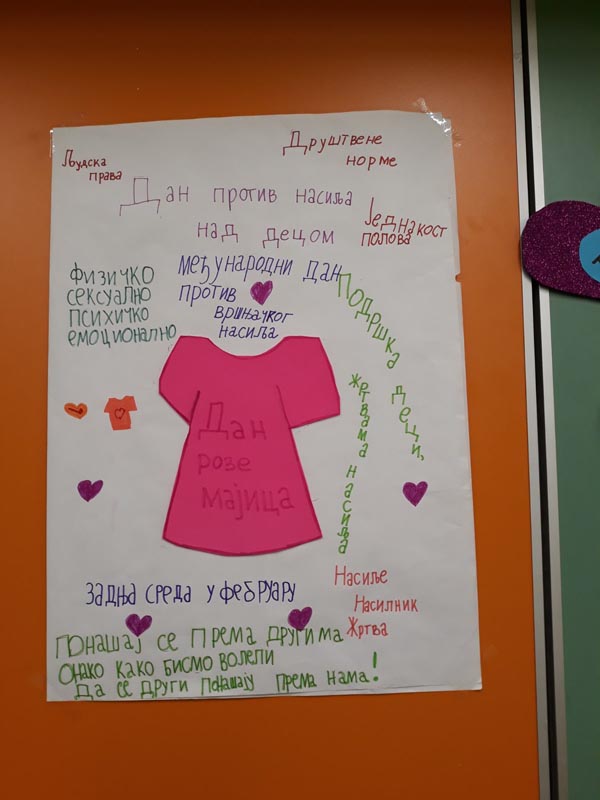 Људска
права
Друштвене
норме
Дан против насиља
над децом
Једнакост
полова
физичко
сексуално
психичко
емоционално
међународни дан
против
вршњачког
насиља
Подршка деци,
жртвама насиља
Дан
розе
мајица
задња среда у фебруару
Насиље
Насилник
Жртва
Понашај се према другима
онако како бисмо волели
да се други понашају према нама!